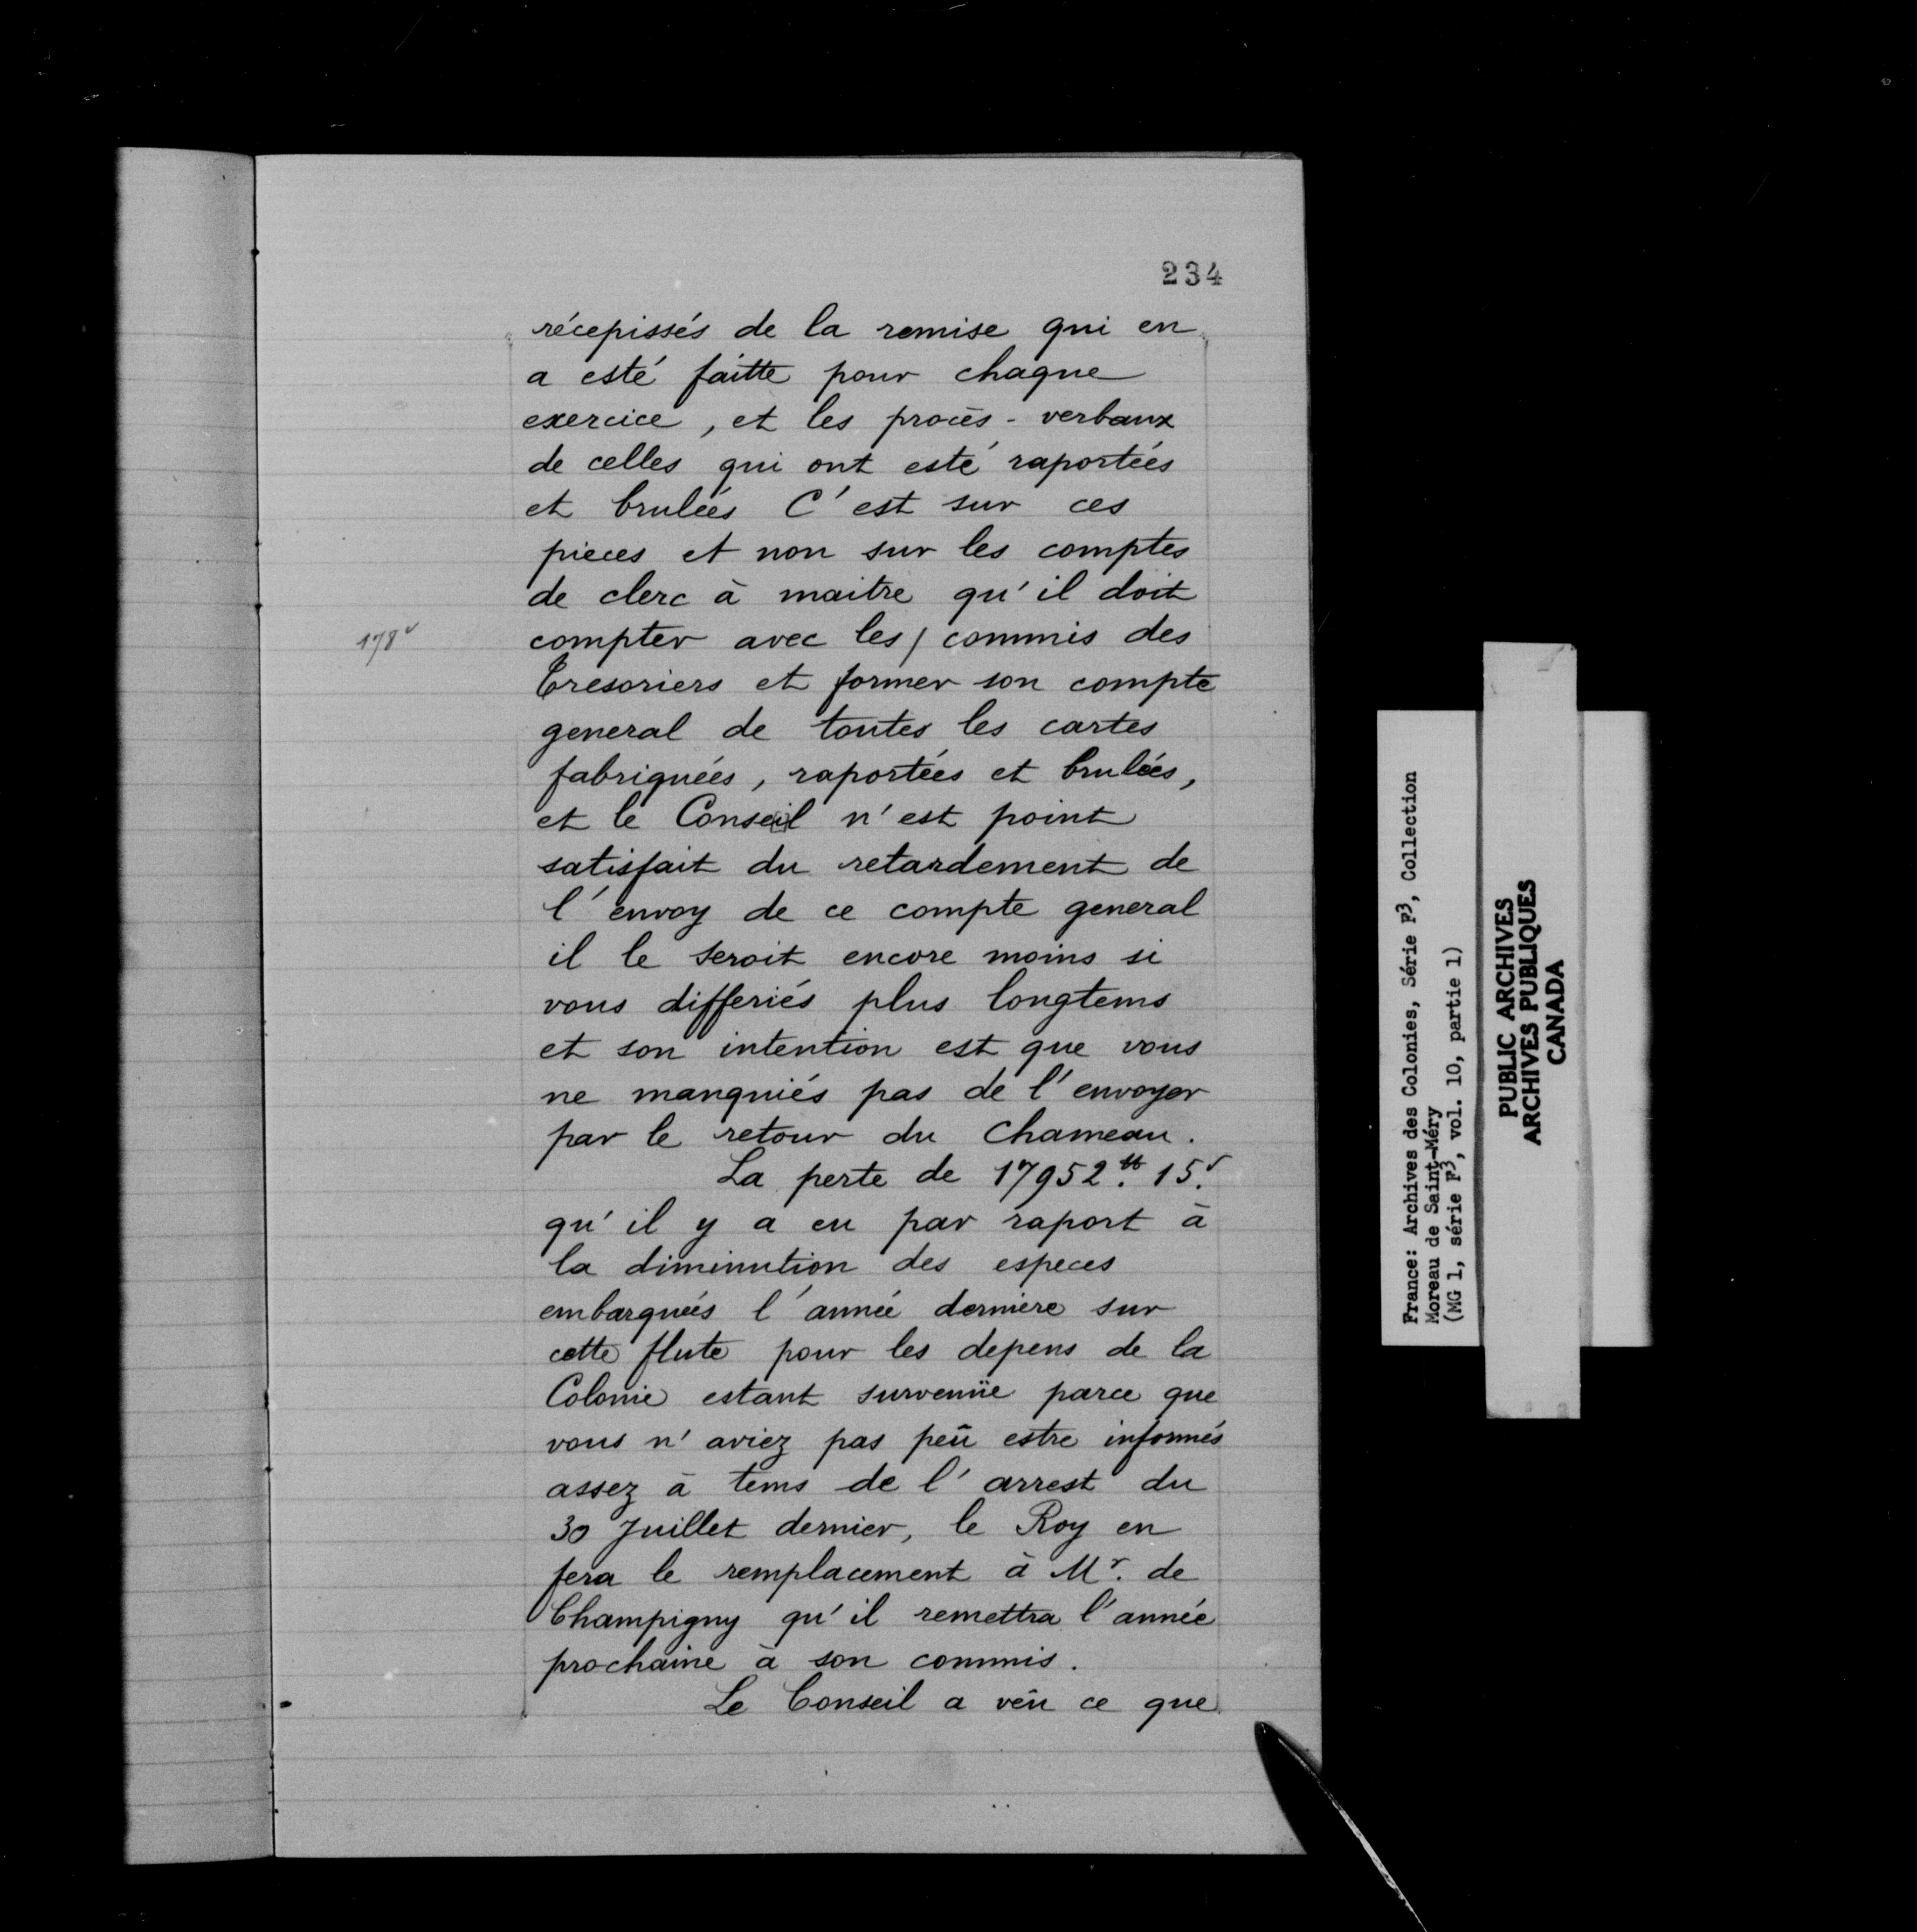 234
récepissés de la remise qui en
a esté faitte pour chaque
exercice, et les procès-verbaux
de celles qui ont esté raportées
et brulées C'est sur ces
pieces et non sur les comptes
de clerc à maitre qu'il doit
178v
compter avec les / commis des
Tresoriers et former son compte
general de toutes les cartes
fabriquées, raportées et brulées,
et le Conseil n'est point
satisfait du retardement de
l'envoy de ce compte general
il le seroit encore moins si
vous differiés plus longtems
et son intention est que vous
ne manquiés pas de l'envoyer
par le retour du Chameau.
La perte de 17952.tt 15.s
qu'il y a eu par raport à
la diminution des especes
embarquées l'année derniere sur
cette flute pour les depens de la
Colonie estant survenüe parce que
vous n'aviez pas peû estre informés
assez à tems de l'arrest du
30 Juillet dernier, le Roy en
fera le remplacement à Mr. de
Champigny qu'il remettra l'année
prochaine à son commis.
Le Conseil a vêu ce que
France: Archives des Colonies, Série F3, Collection
Moreau de Saint-Méry
(MG 1, série F3, vol. 10, partie 1)
PUBLIC ARCHIVES
ARCHIVES PUBLIQUES
CANADA